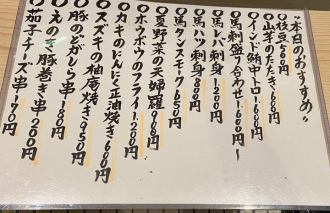 "本日のおすすめ"
〇枝豆 500円
〇山芋のたたき 600円
〇インド鮪中トロ 1.600円
〇馬刺盛り合わせ 1.600円〜
〇馬レバ刺身 1.200円
〇馬ハツ刺身 800円
〇馬タンスモーク 650円
〇夏野菜の天婦羅
〇ホウボウのフライ 1.200
〇カキのにんにく正油焼き 680円
〇スズキの柚庵焼き 950円
〇豚のどがしら串 180円
〇えのき豚巻き串 200円
〇茄子チーズ串 170円